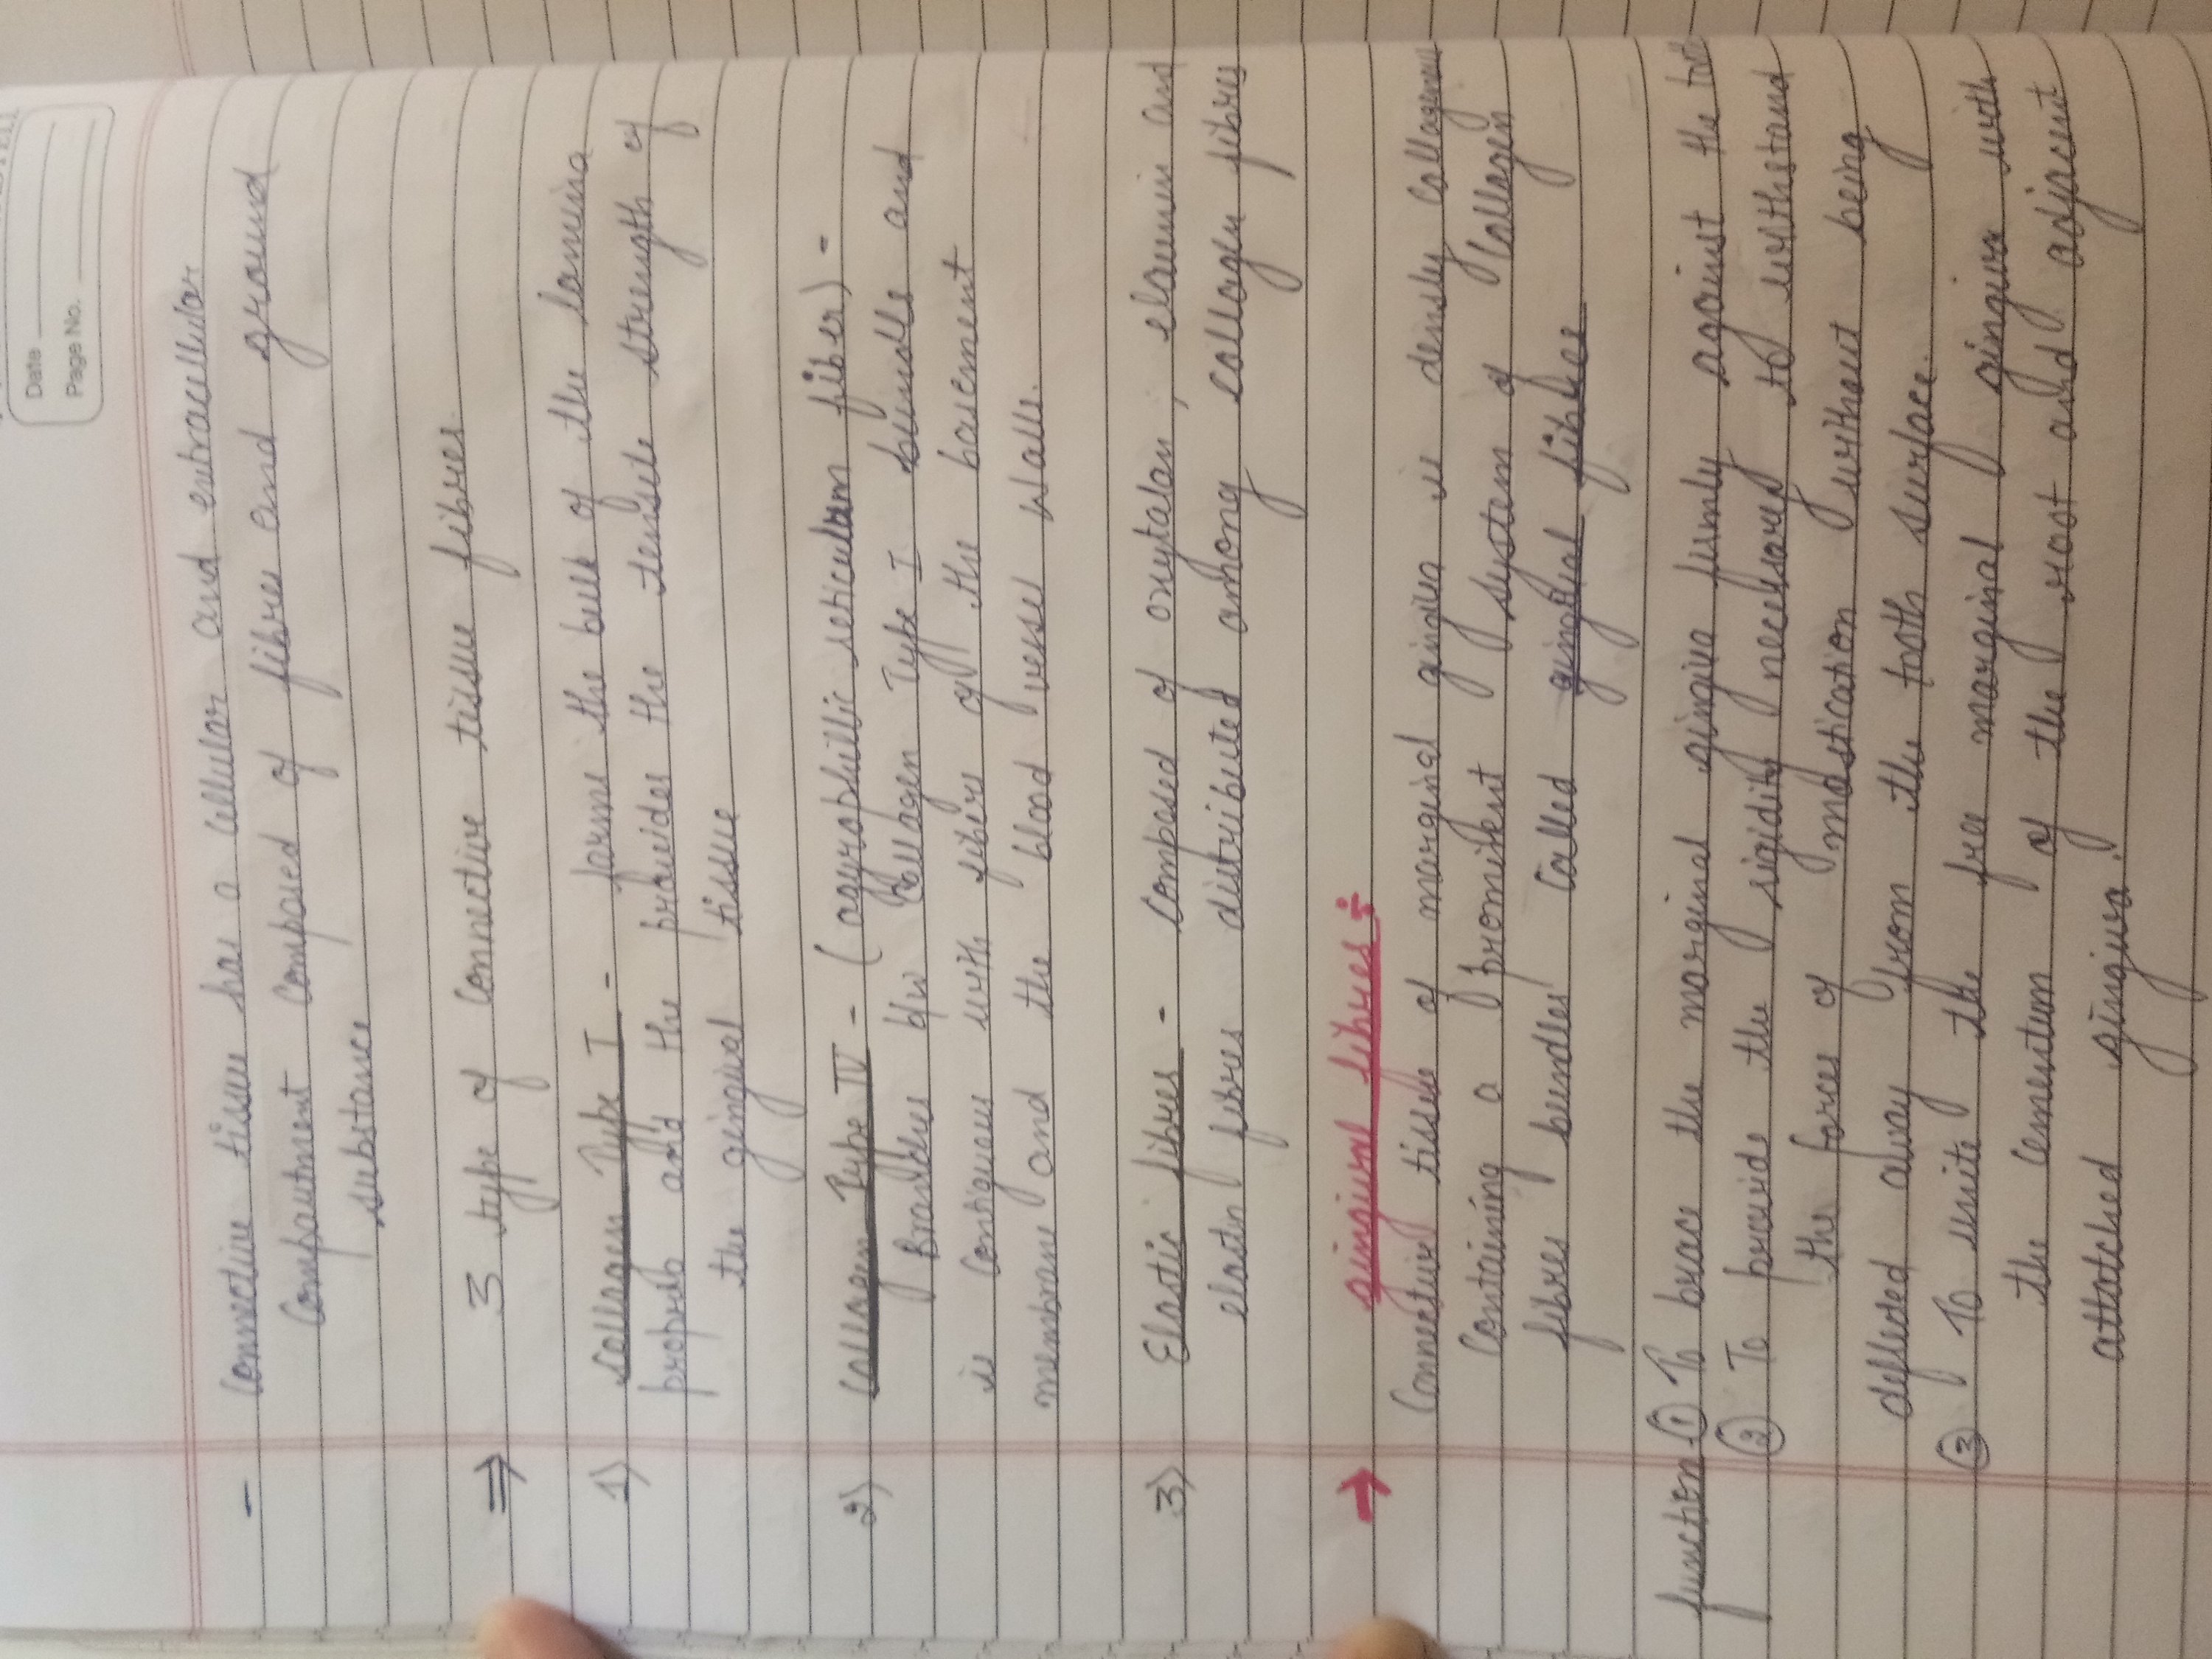 Date
Page No.
- Connective tissue has a cellular and extracellular
Compautment composed of fibres and ground
substance
⇒ 3 type of connective tissue fibres
1) Collagen Type I - forms the bulk of the lamina
propria and the provides the tensile strength of
the gingival tissue
2) Collagen Type IV - (agyrophillic reticulum fiber) -
Branches b/w Collagen Type I bundles and
is contiguous with fibers of the basement
membrane and the blood vessel walls.
3) Elastic fibres - Composed of oxytalan, elaunin and
elastin fibres distributed among collagen fibres
→ gingival fibres ÷
Connective tissue of marginal gingiva is densly collagenous
Containing a prominent system of Collagen
fibres bundles called gingival fibres
function - ① To brace the marginal gingiva firmly against the tooth
② To provide the rigidity necessary to withstand
the forces of mastication without being
deflected away from the tooth surface.
③ To unite the free marginal gingiva with
the cementum of the root and adjacent
attatched gingiva.